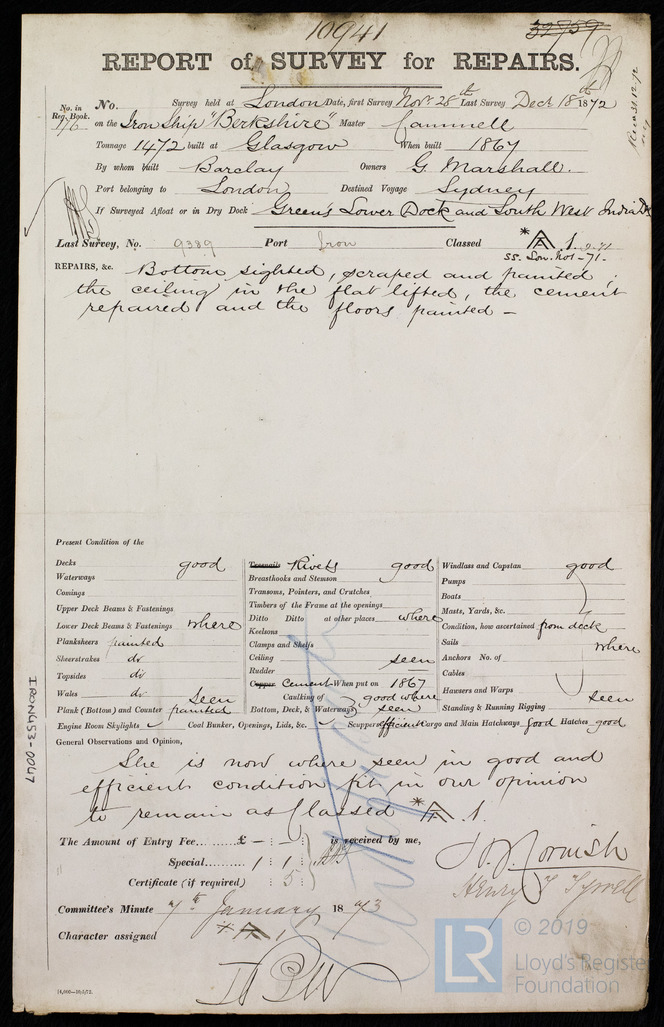 10941
32759
REPORT of SURVEY for REPAIRS.
No. in Reg. Book.
176
No. Survey held at London Date, first Survey Novr 28th Last Survey Decr 18th 1872
on the Iron Ship "Berkshire" Master Cammell
Tonnage 1472 built at Glasgow When built 1867
By whom built Barclay Owners G. Marshall.
Port belonging to London Destined Voyage Sydney
If Surveyed Afloat or in Dry Dock Green's Lower Dock and South West India Dk
Last Survey, No. 9389 Port Iron Classed * A . 1.
SS. Lon. No1 - 71.
REPAIRS, &c. Bottom sighted, scraped and painted ;
the ceiling in the flat lifted, the cement
repaired and the floors painted -
Present Condition of the
Decks good
Waterways
Comings
Upper Deck Beams & Fastenings
Lower Deck Beams & Fastenings where
Planksheers painted
Sheerstrakes do
Topsides do
Wales do seen
Plank (Bottom) and Counter painted
Treenails Rivets good
Breasthooks and Stemson
Transoms, Pointers, and Crutches
Timbers of the Frame at the openings
Ditto Ditto at other places where
Keelsons
Clamps and Shelfs
Ceiling seen
Rudder
Copper Cement When put on 1867
Caulking of good where
Bottom, Deck, & Waterways seen
Windlass and Capstan good
Pumps
Boats
Masts, Yards, &c.
Condition, how ascertained from deck
Sails where
Anchors No. of
Cables
Hawsers and Warps
Standing & Running Rigging seen
Engine Room Skylights Coal Bunker, Openings, Lids, &c. Scuppers efficient Cargo and Main Hatchways good Hatches good
General Observations and Opinion,
She is now where seen in good and
efficient condition fit in our opinion
to remain as Classed * A . 1.
The Amount of Entry Fee ...... £ - : - : is received by me,
Special ........ 1 : 1 :
Certificate (if required) : 5
J. Cornish
Henry T Tyrrell
Committee's Minute 7th January 1873
Character assigned * A 1
IRON453-0047
© 2019
LR
Lloyd's Register
Foundation